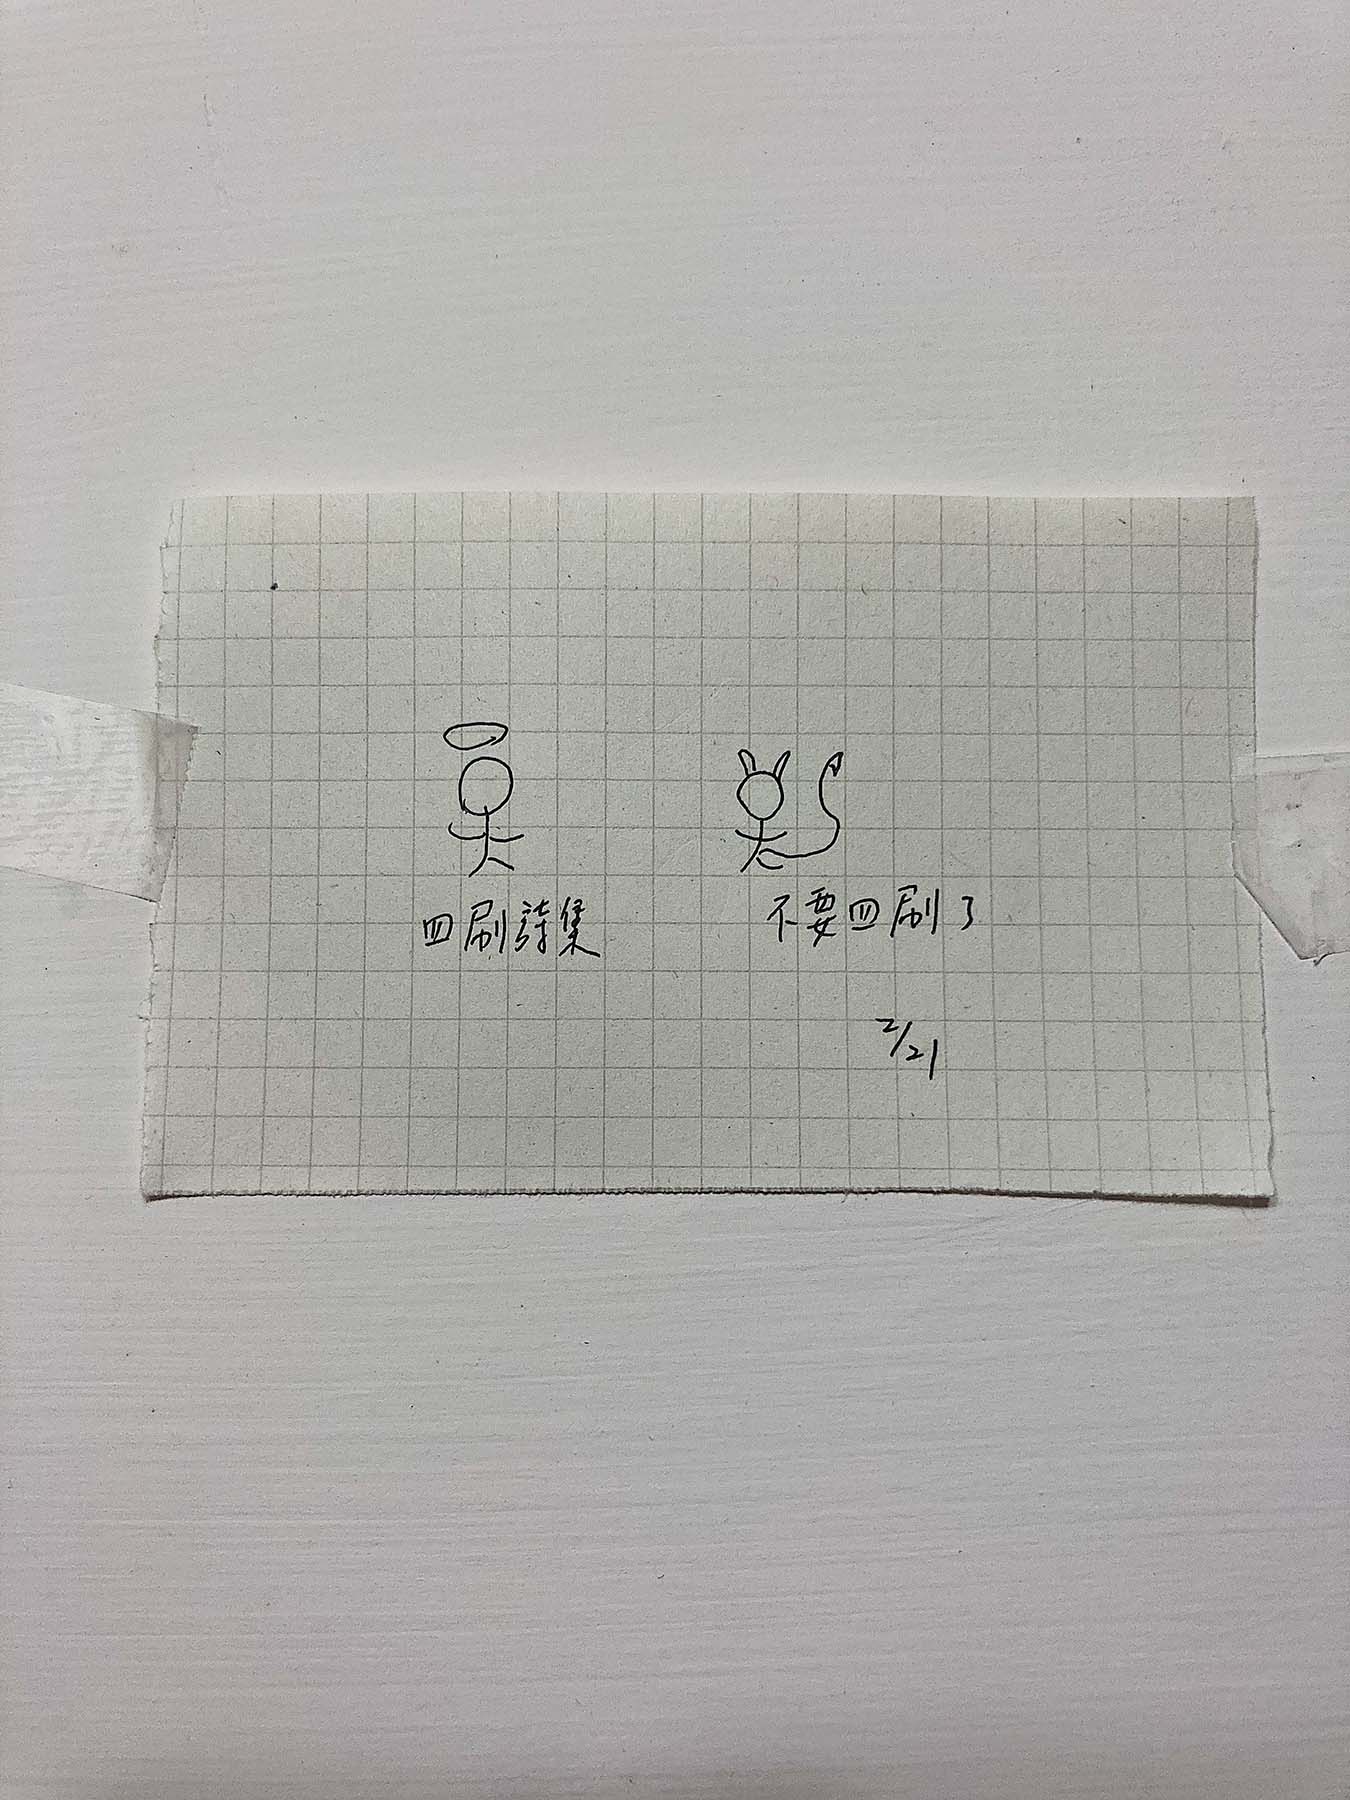 四刷詩集
不要四刷了
2/21